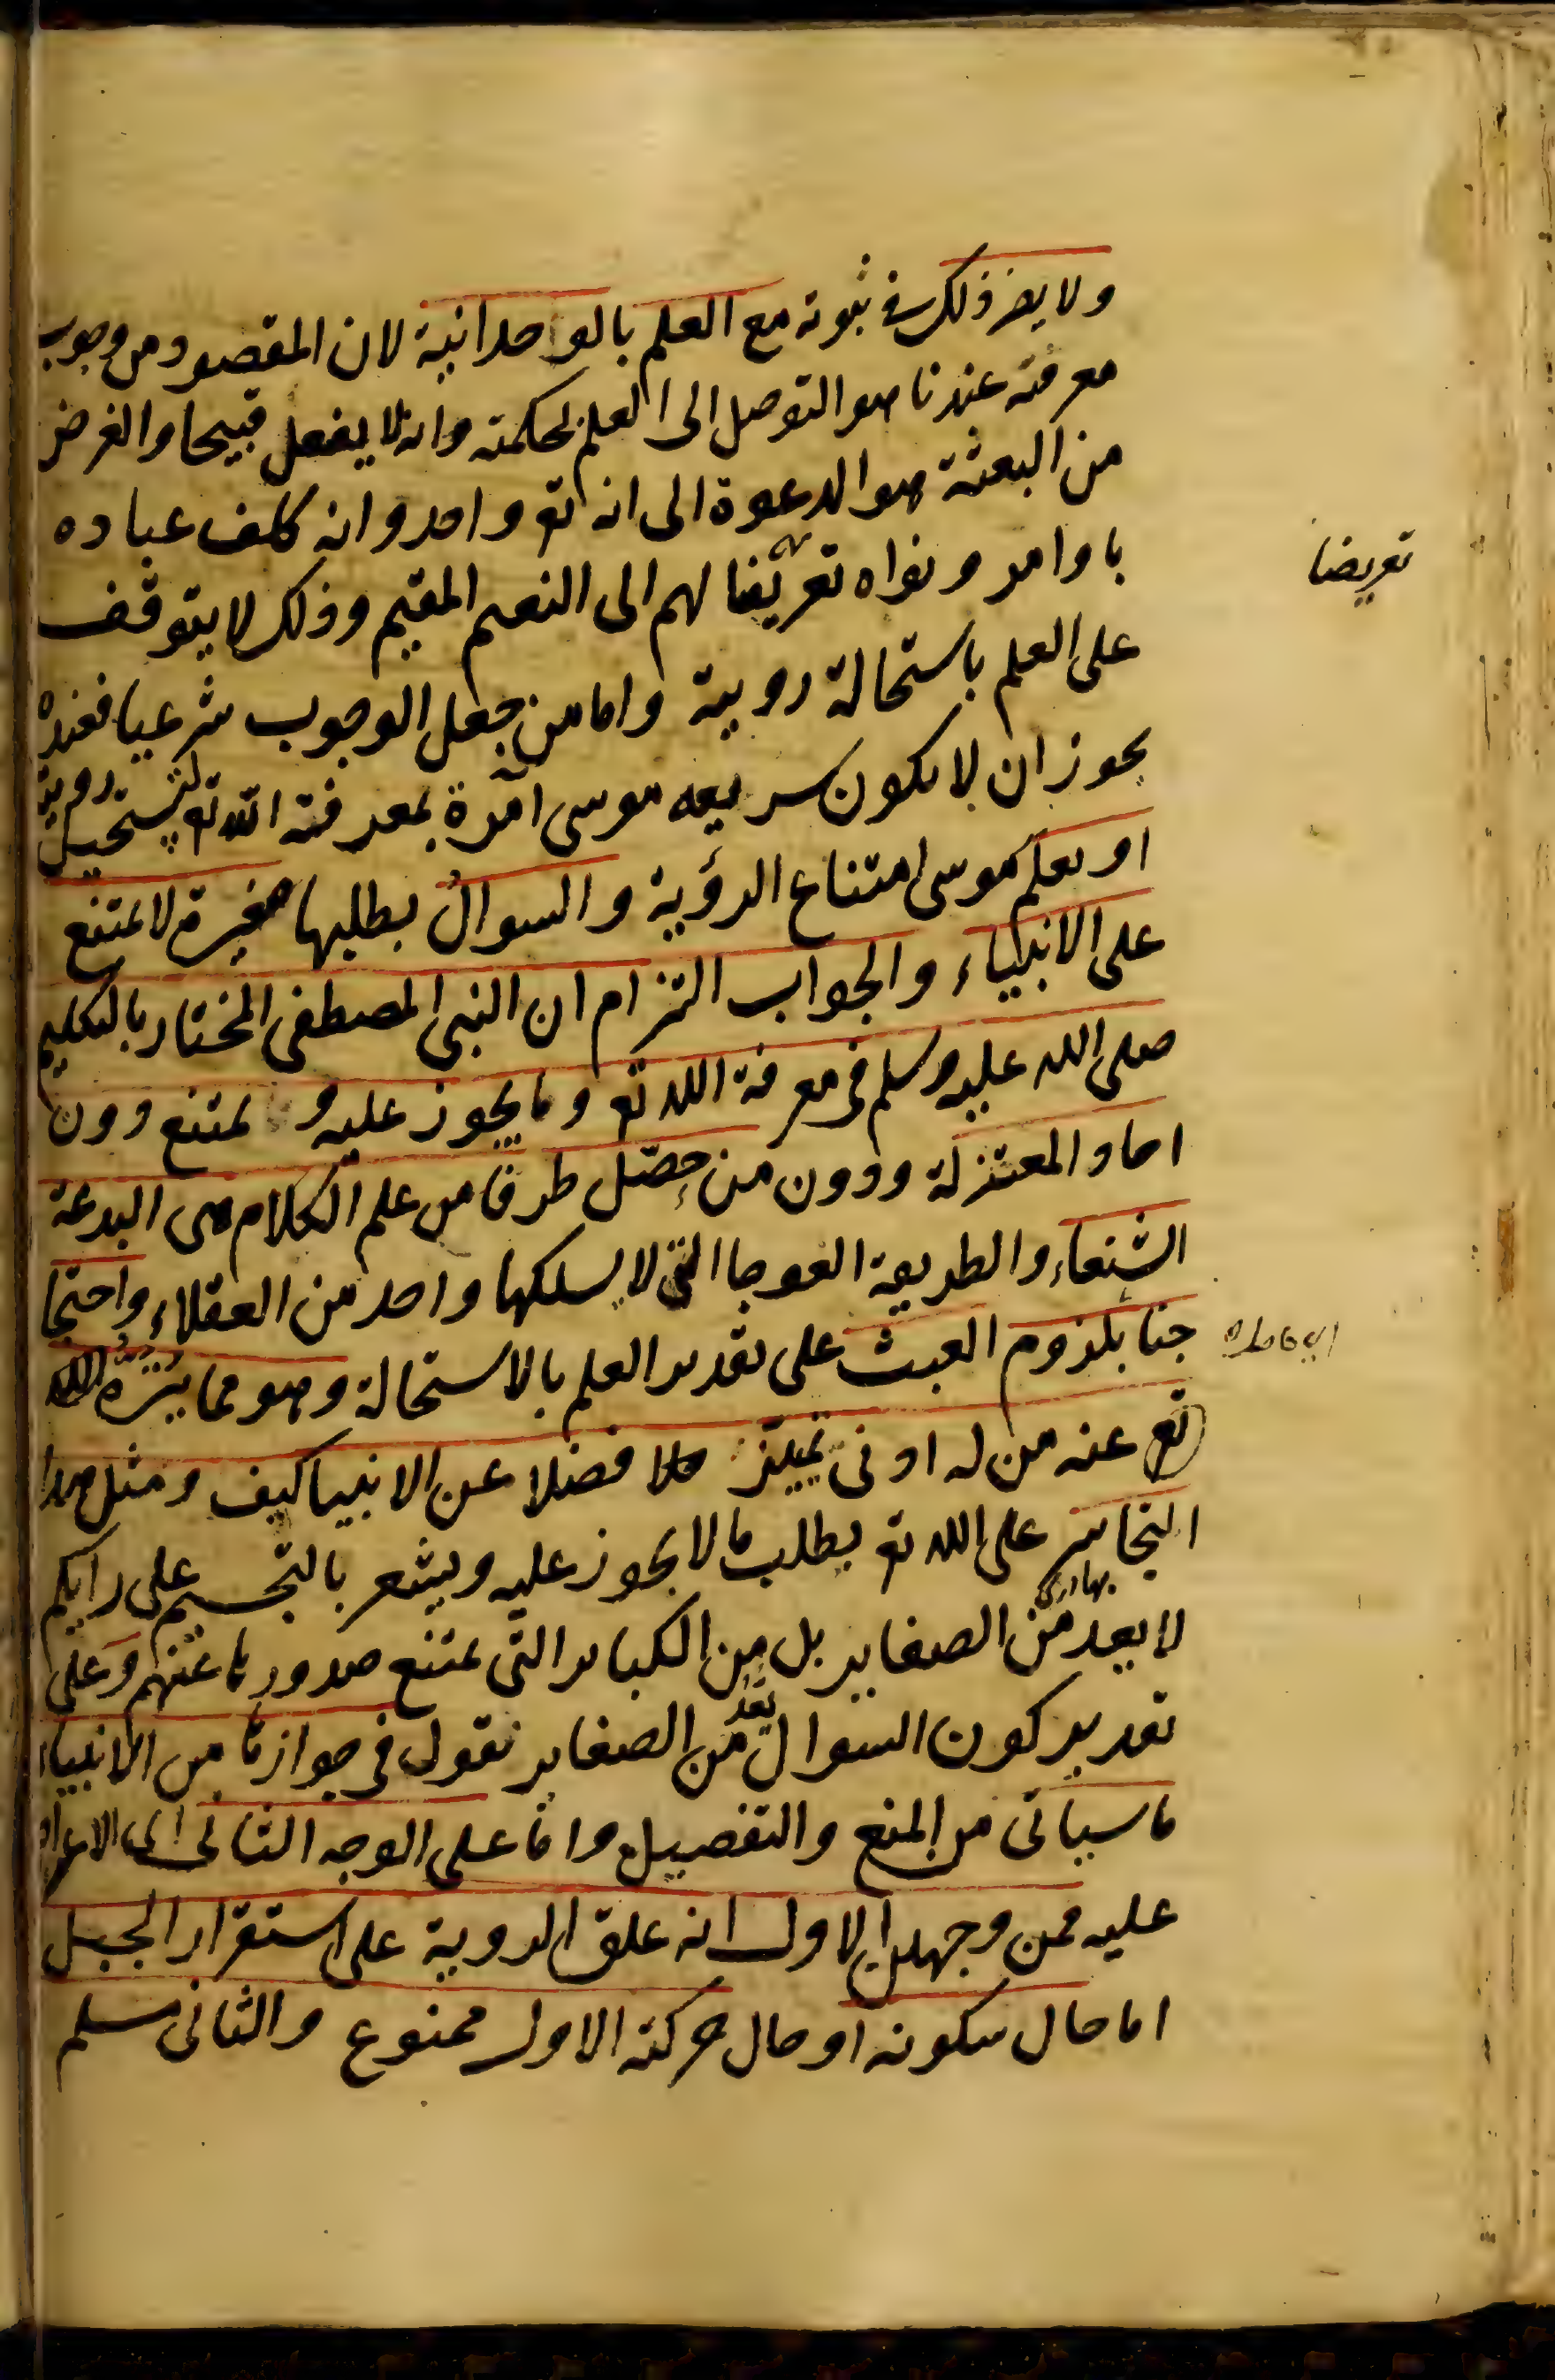 ولا يضر ذلك في ثبوته مع العلم بالوحدانية لان المقصود من وجوب
معرفته عندنا هو التوصل الى العلم بحكمته وانه لا يفعل قبيحا والغرض
من البعثة هو الدعوة الى انه تع واحد وانه كلف عباده
باوامر ونواه تعريضا لهم الى النعيم المقيم وذلك لا يتوقف
تعريضا
على العلم باستحالة رويته واما من جعل الوجوب شرعيا فعنده
يجوز ان لا يكون شريعه موسى آمرة بمعرفة الله تع يستحيل رويته
او يعلم موسى امتناع الرؤية والسوال بطلبها صغيرة لا يمتنع
على الانبياء والجواب التزام ان النبي المصطفى المختار بالتكليم
صلى الله عليه وسلم في معرفة الله تع وما يجوز عليه و يمتنع دون
احاد المعتزلة ودون من حصّل طرفا من علم الكلام هي البدعة
الشنعاء والطريقة العوجا التي لا يسلكها واحد من العقلاء واحتجا
جنا بلزوم العبث على تقدير العلم بالاستحالة وهو مما ينزه الله
تع عنه من له ادنى تمييز فضلا عن الانبيا كيف ومثل هذا
التجاسر على الله تع بطلب ما لا يجوز عليه ويشعر بالتجسيم على رايكم
لا يعد من الصغاير بل من الكباير التي يمتنع صدورها عنهم وعلى
تقدير كون السوال يعد من الصغاير نقول في جوازها من الانبياء
ما سياتي من المنع والتفصيل واما على الوجه الثاني اي الاعتراض
عليه فمن وجهين الاول انه علق الروية على استقرار الجبل
اما حال سكونه او حال حركته الاول ممنوع والثاني مسلم